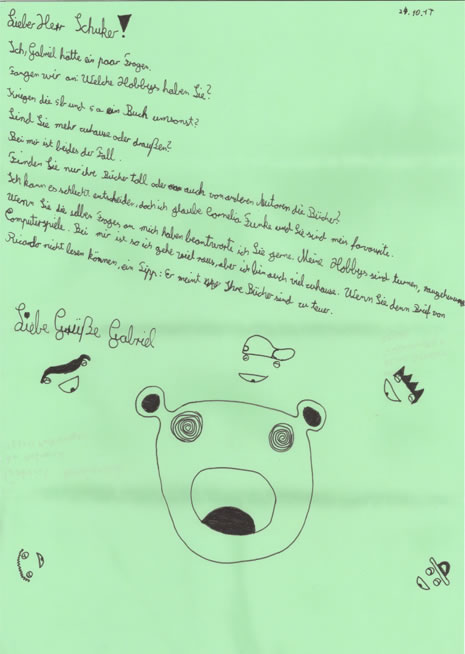 24.10.17
Lieber Herr Schuker!
Ich, Gabriel hätte ein paar Fragen.
Fangen wir an: Welche Hobbys haben Sie?
Kriegen die 5b und 5a ein Buch umsonst?
Sind Sie mehr zuhause oder draußen?
Bei mir ist beides der Fall.
Finden Sie nur ihre Bücher toll oder auch von anderen Autoren die Bücher?
Ich kann es schlecht entscheiden, doch ich glaube Cornelia Funke und Sie sind mein favourite.
Wenn Sie die selben Fragen an mich haben beantworte ich Sie gerne. Meine Hobbys sind turnen, rausgehen
Computerspiele. Bei mir ist so ich gehe viel raus, aber ich bin auch viel zuhause. Wenn Sie denn Brief von
Ricardo nicht lesen können, ein Tipp: Er meint Ihre Bücher sind zu teuer.
Liebe Grüße Gabriel